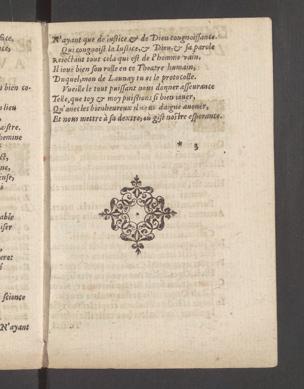 ſtice,
nce,
t bien co-
n lieu
œstre.
hemine
ne,
enſe,
able
iſer
eret
ſciente
N'ayant
N'ayant que de iuſtice & de Dieu congnoiſſante.
Qui congnoiſt la Iuſtice, & Dieu, & ſa parole
Reiectant tout cela qui eſt de l'homme vain,
Il ioue bien ſon rolle en ce Theatre humain,
Duquel, mon de Launay tu es le protocolle.
Vueille le tout puiſſant nous donner aſſeurance
Telle, que toy & moy puiſſions ſi bien iouer,
Qu'auec les bienheureux il nous daigne auouer,
Et nous mettre à ſa dextre, où giſt noſtre eſperance.
* 3